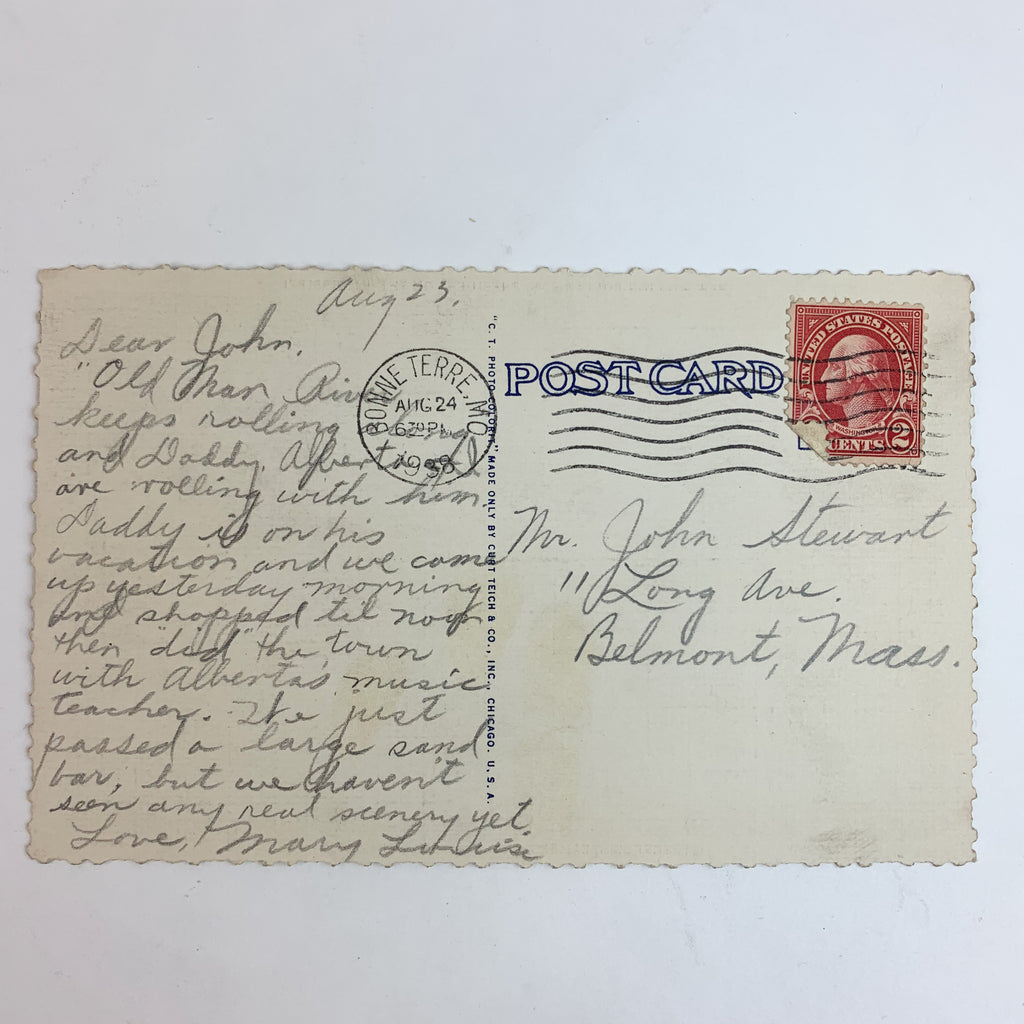 Aug 23.
Dear John,
"Old Man River
keeps rolling along
and Daddy, Alberta, & I
are rolling with him.
Daddy is on his
vacation and we came
up yesterday morning
and shopped til noon
then "did" the town
with Albertas music
teacher. We just
passed a large sand
bar, but we haven't
seen any real scenery yet.
Love, Mary Louise
BONNE TERRE, MO.
AUG 24
630 PM
1938
"C. T. PHOTO-COLORIT" MADE ONLY BY CURT TEICH & CO., INC., CHICAGO. U. S. A.
POST CARD
UNITED STATES POSTAGE
WASHINGTON
CENTS 2
Mr. John Stewart
11 Long Ave.
Belmont, Mass.